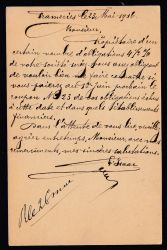 Frameries le 22 Mai 1918
Monsieur,
Propriétaire d'un
certain nombre d'obligations 4 ½ %
de votre société je vous prie
de vouloir bien me faire connaître si
vous paierez au 1er Juin prochain le
coupon Nº 33 de vos obligations
à cette date et dans quels établissements
financiers.
Dans l'attente de vous lire, veuillez
agréer Monsieur, avec mes
remerciements, mes sincères salutations